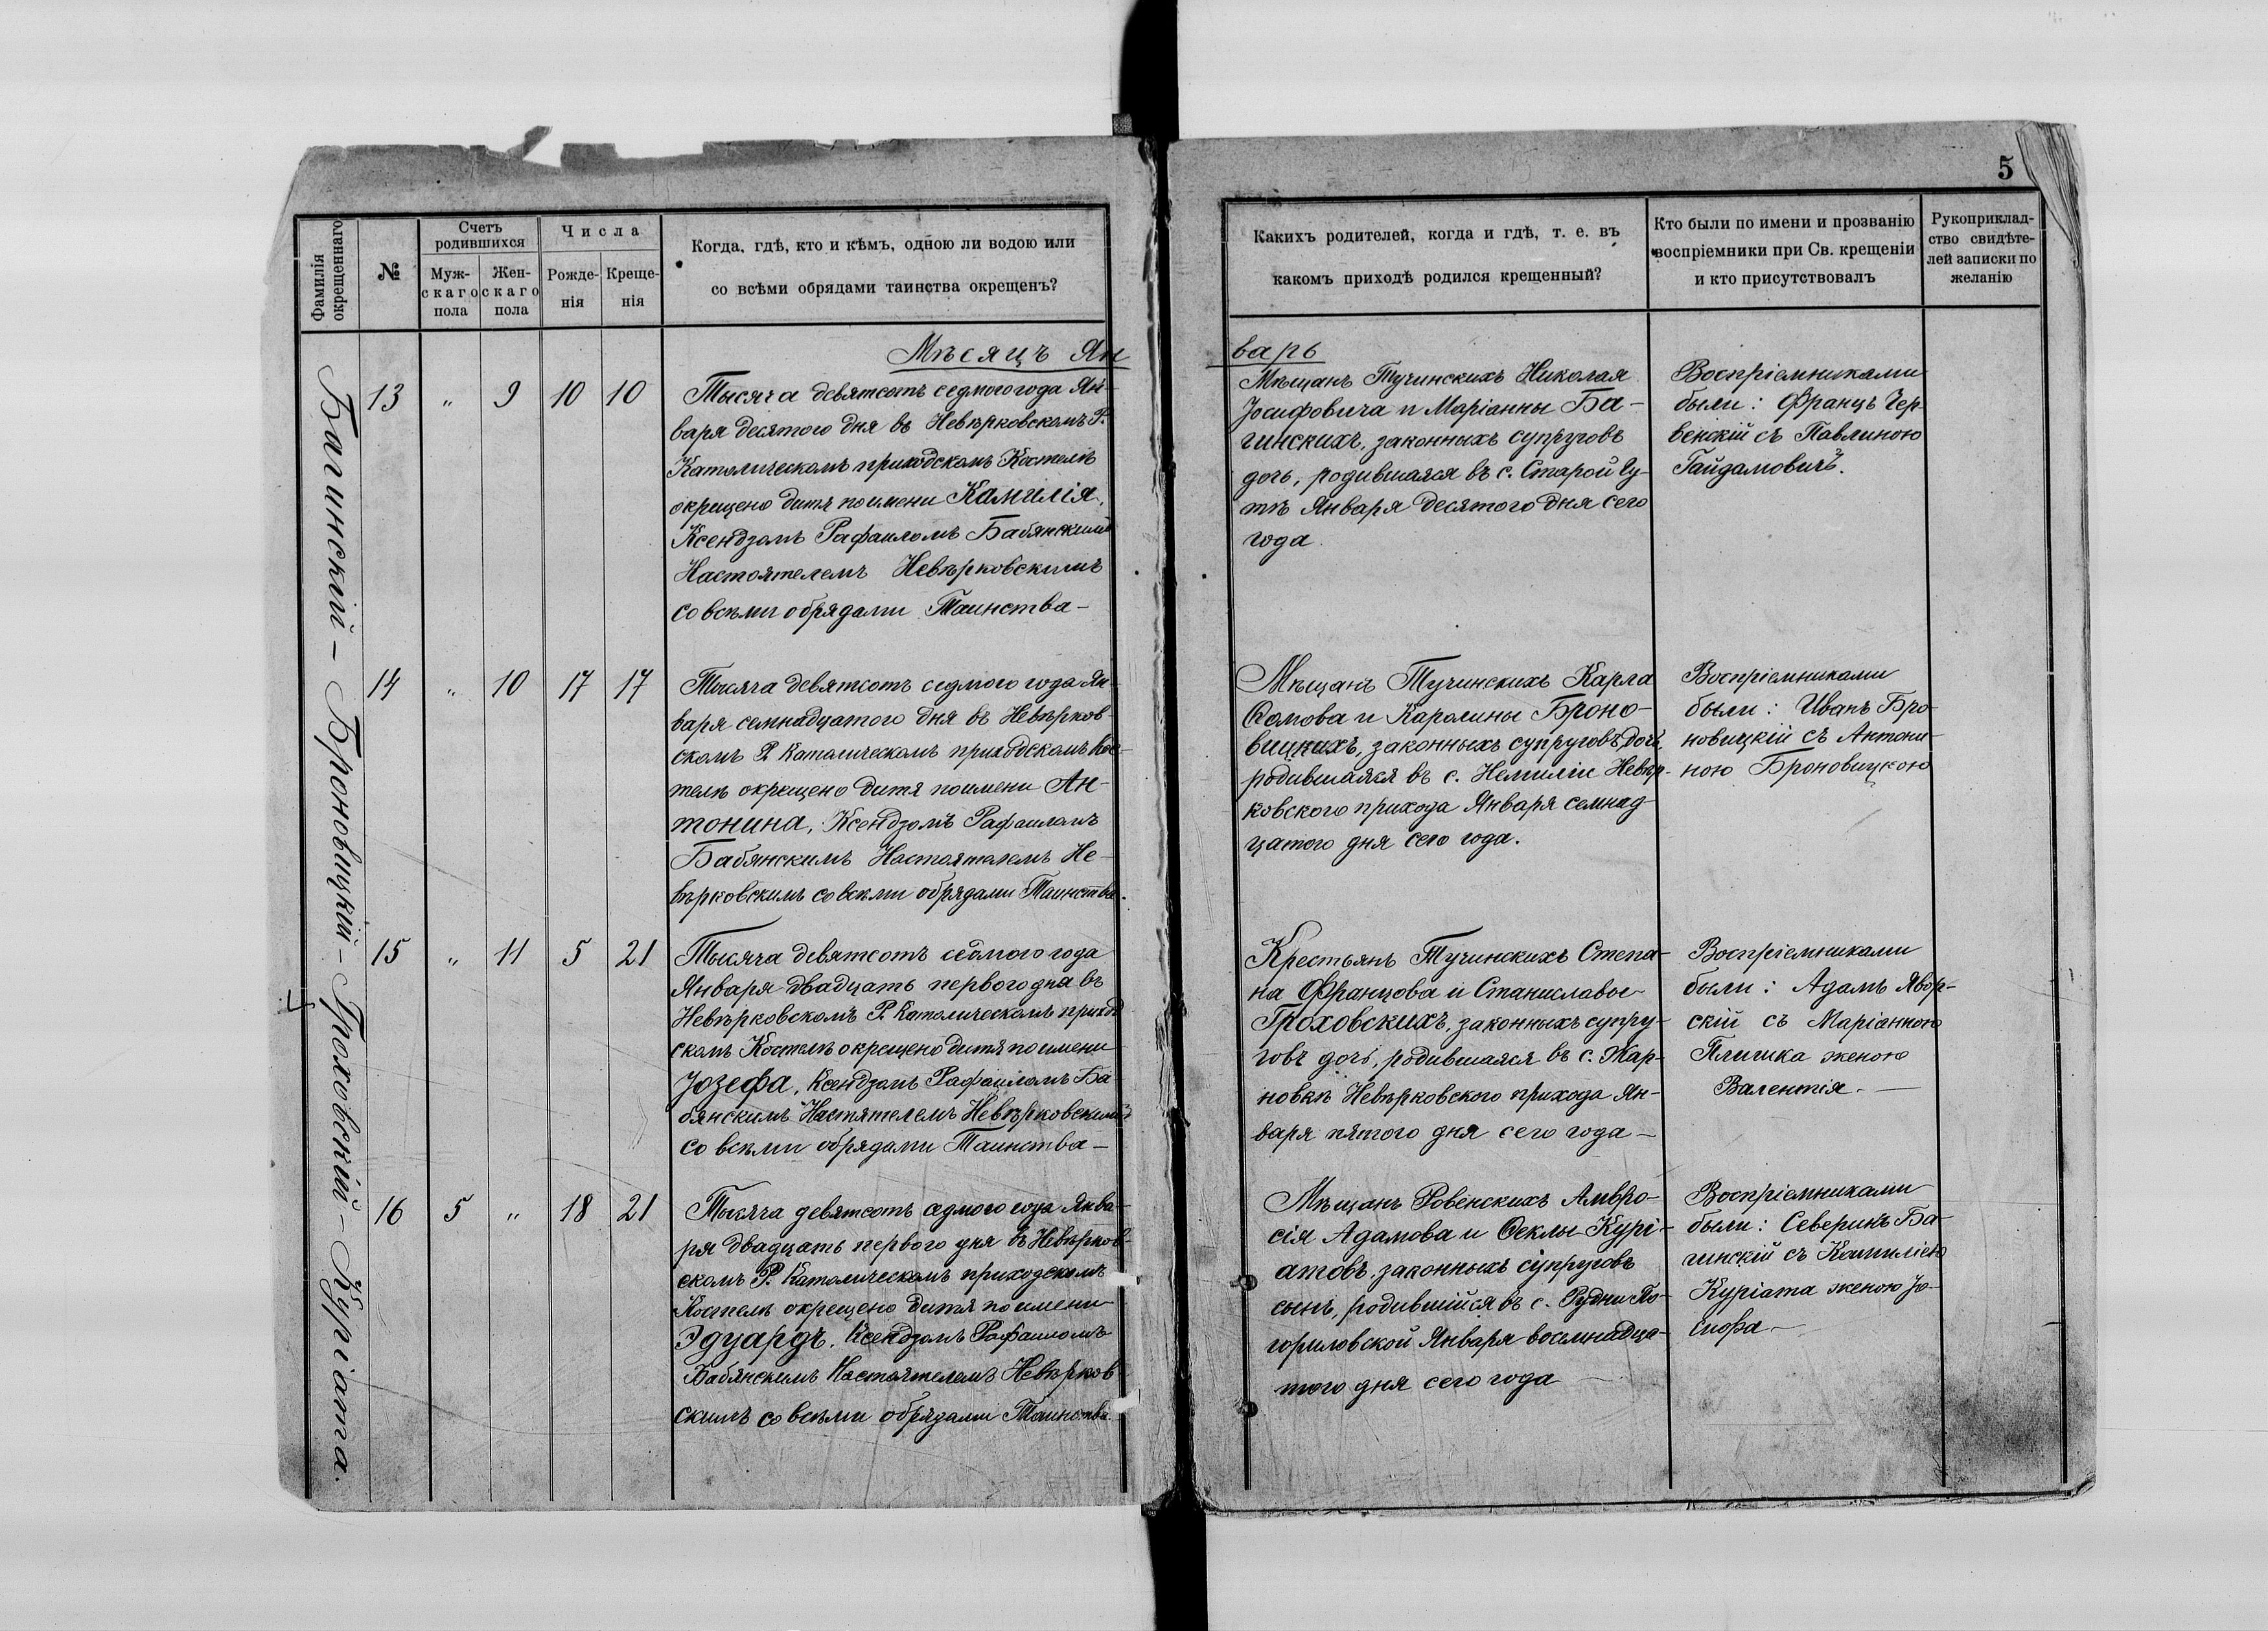 5
Фамилія
окрещеннаго
№
Счетъ
родившихся
Муж-
скаго
пола
Жен-
скаго
пола
Числа
Рожде-
нія
Креще-
нія
Когда, гдѣ, кто и кѣмъ, одною ли водою или
со всѣми обрядами таинства окрещенъ?
Какихъ родителей, когда и гдѣ, т. е. въ
какомъ приходѣ родился крещенный?
Кто были по имени и прозванію
воспріемники при Св. крещеніи
и кто присутствовалъ
Рукоприклад-
ство свидѣте-
лей записки по
желанію
Багинскій – Броновицкій – Гроховскій – Куріата.
Мѣсяцъ Ян
варь
13 " 9 10 10
Тысяча девятсотъ седмого года Ян-
варя десятого дня въ Невѣрковскомъ Р.
Католическомъ приходскомъ Костелѣ
окрещено дитя по имени Камилія,
Ксендзомъ Рафаиломъ Бабянскимъ
Настоятелемъ Невѣрковскимъ
со всѣми обрядами Таинства –
Мѣщанъ Тучинскихъ Николая
Іосифовича и Маріанны Ба-
гинскихъ, законныхъ супруговъ
дочь, родившаяся въ с. Старой Гу-
тѣ Января десятого дня сего
года.
Воспріемниками
были: Францъ Чер-
венскій съ Павлиною
Гайдамовичъ.
14 " 10 17 17
Тысяча девятсотъ седмого года Ян-
варя семнадцатого дня въ Невѣрков-
скомъ Р. Католическомъ приходскомъ Кос-
телѣ окрещено дитя по имени Ан-
тонина, Ксендзомъ Рафаиломъ
Бабянскимъ Настоятелемъ Не-
вѣрковскимъ со всѣми обрядами Таинства.
Мѣщанъ Тучинскихъ Карла
Өомова и Каролины Броно-
вицкихъ, законныхъ супруговъ, дочь,
родившаяся въ с. Немиліи Невѣр-
ковского прихода Января семнад-
цатого дня сего года.
Воспріемниками
были: Иванъ Бро-
новицкій съ Антони-
ною Броновицкою
15 " 11 5 21
Тысяча девятсотъ седмого года
Января двадцать первого дня въ
Невѣрковскомъ Р. Католическомъ приход-
скомъ Костелѣ окрещено дитя по имени
Іозефа, Ксендзомъ Рафаиломъ Ба
бянскимъ Настятелемъ Невѣрковскимъ
со всѣми обрядами Таинства –
Крестьянъ Тучинскихъ Степа-
на Францова и Станиславы
Гроховскихъ, законныхъ супру-
говъ дочь, родившаяся въ с. Жар-
новкѣ Невѣрковского прихода Ян-
варя пятого дня сего года –
Воспріемниками
были: Адамъ Явор-
скій съ Маріанною
Плишка женою
Валентія. –
16 5 " 18 21
Тысяча девятсотъ седмого года Янва-
ря двадцать первого дня въ Невѣрков-
скомъ Р. Католическомъ приходскомъ
Костелѣ окрещено дитя по имени
Эдуардъ. Ксендзомъ Рафаиломъ
Бабянскимъ Настоятелемъ Невѣрков
скимъ со всѣми обрядами Таинства.
Мѣщанъ Ровенскихъ Амвро-
сія Адамова и Өеклы Курі-
атовъ, законныхъ супруговъ
сынъ, родившійся въ с. Рудни По-
гориловской Января восемнадца-
того дня сего года –
Воспріемниками
были: Северинъ Ба-
гинскій съ Камиліею
Куріата женою Іо-
сифа –